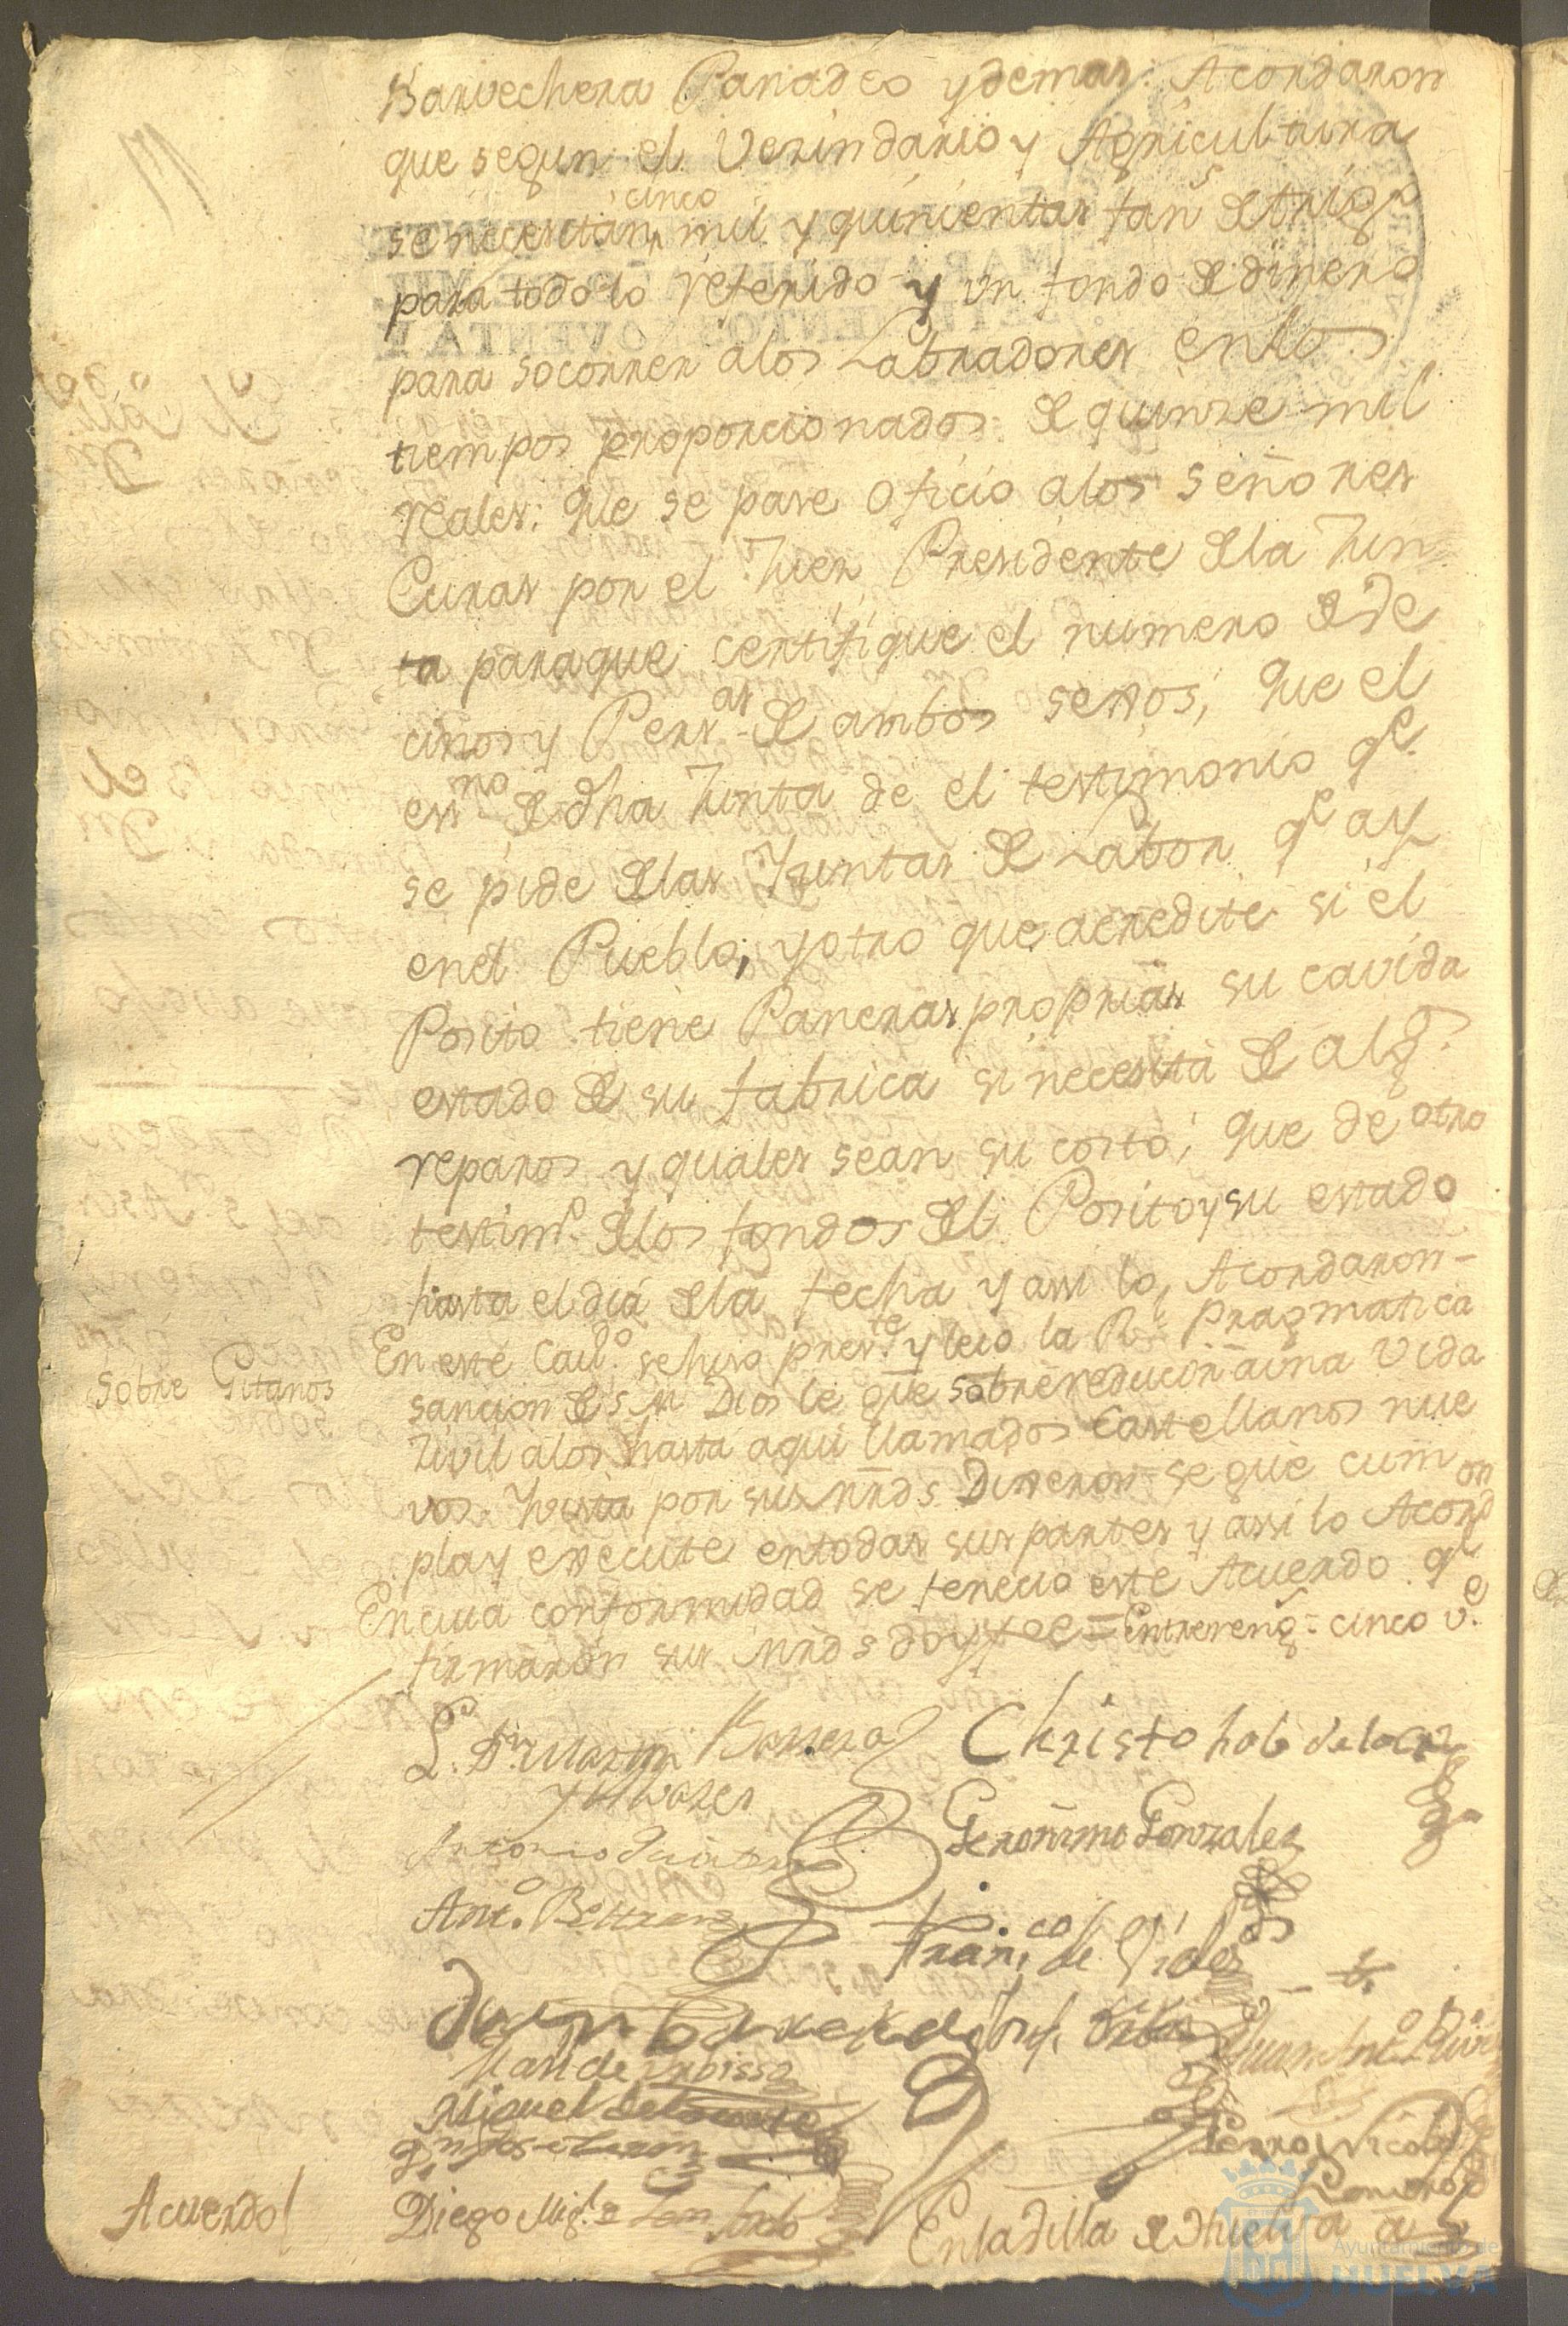 Barvechera Panadeo y demas: Acordaron
que segun el Vecindario y Agricultura
se necesitan cinco mil y quinientas fan.s de trigo
para todo lo referido y un fondo de dinero
para socorrer alos Labradores enlos
tiempos proporcionados de quinze mil
reales: Que se pase oficio alos Señores
Curas por el Juez Presidente dela Jun
ta paraque certifique el numero de Ve
cinos y Pers.as de ambos sexos; Que el
es.no de dha Junta de el testimonio q.e
se pide delas Yuntas de Labor q.e ay
enel Pueblo; y otro que acredite si el
Posito tiene Paneras proprias su cavida
estado de su fabrica si necesita de alg.os
reparos y quales sean su costo; Que de otro
testim.o delos fondos del Posito y su estado
hasta el dia dela fecha y assi lo Acordaron-
Sobre Gitanos
En este Cavil.o se hiso pres.te y leio la R.l Pragmatica
sancion de S.M. Dios le gue sobre reducir a una vida
Zivil alos hasta aqui llamados Castellanos nue
vos. Y vista por sus mrds Dixeron se gue cum
pla y execute entodas sus partes y assi lo Acord.on
En cuia conformidad se fenecio este Acuerdo q.e
firmaron sus mrds doy fee = Entrereng.s = cinco v.e
L.do D.n Martin Barrera
y Alvarez
Christobal dela
Geronimo Gonzales
Antonio Quintero
Ant.o Beltran
Fran.co de Vides
Juan
Miguel dela
Juan Ant.o
Pedro Nicolas
Romero
Diego Mig.l
Acuerdo
En la Villa de Huelva a
Ayuntamiento de
HUELVA